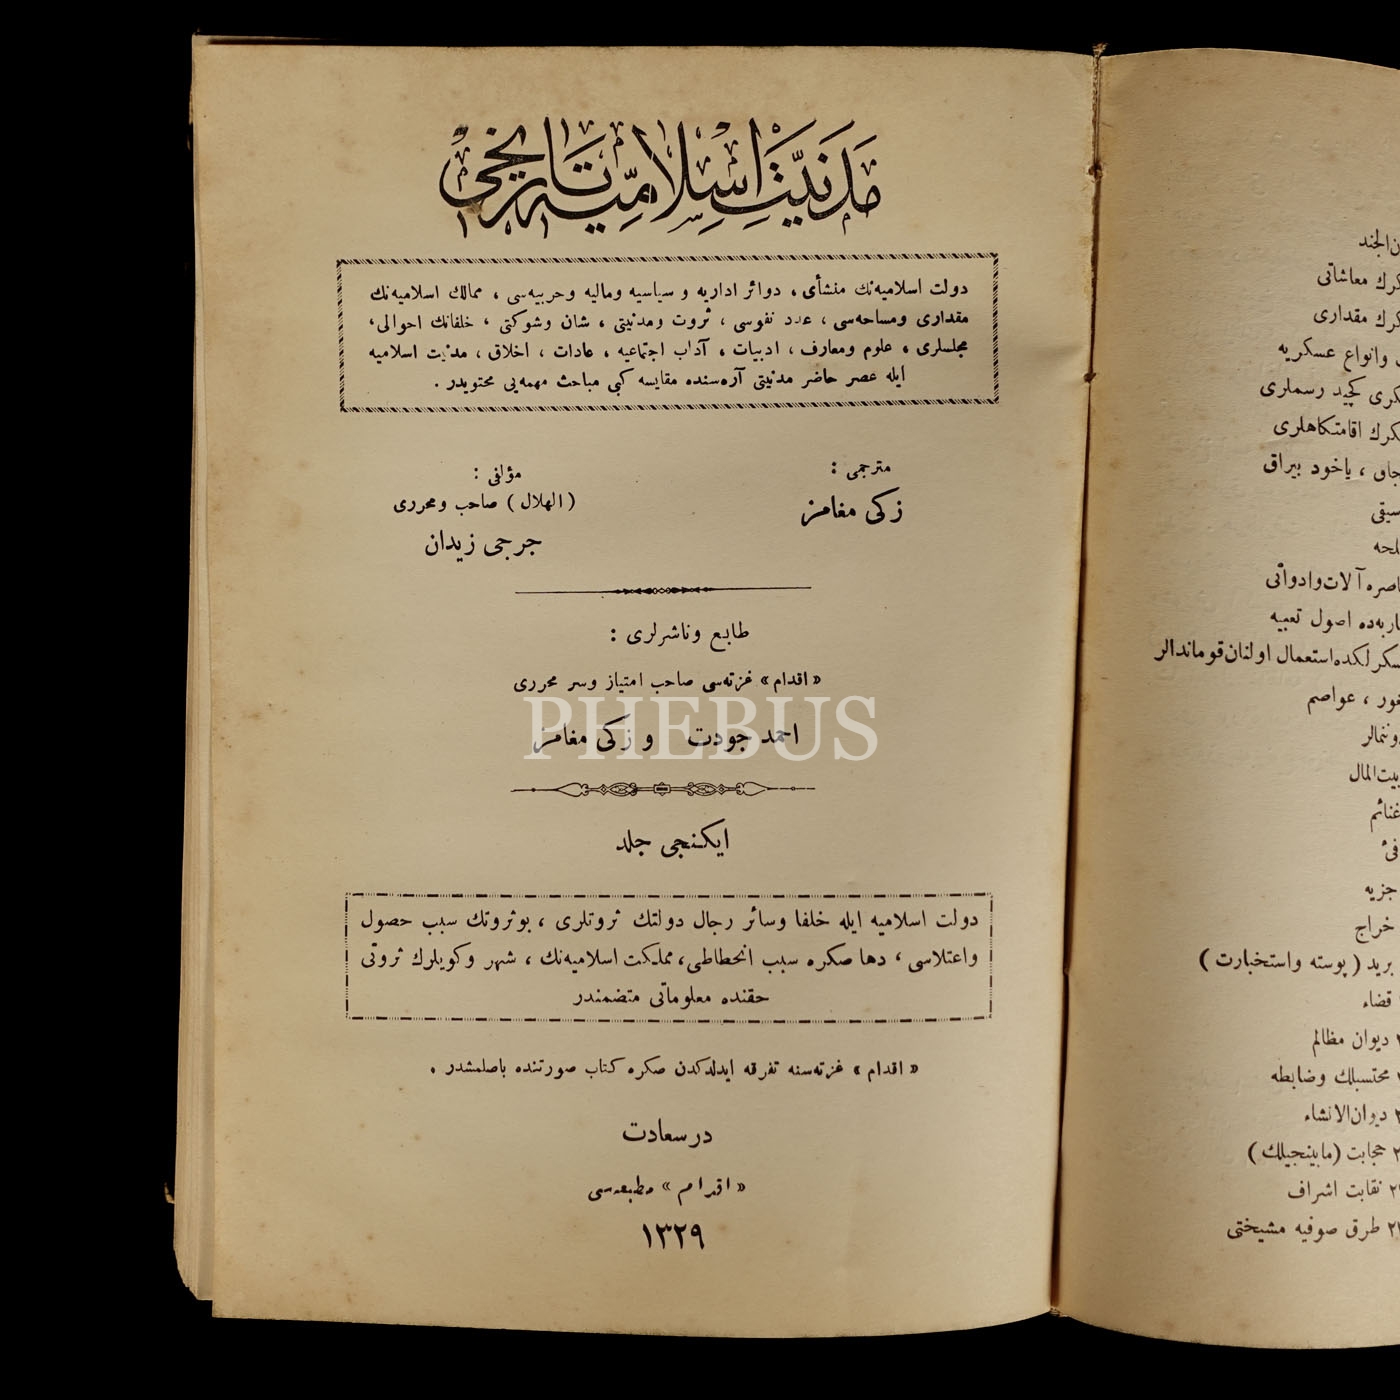 مَدَنِيَّتِ اِسْلامِيَّه تَارِيخِى
دولت اسلاميه‌نك منشأى ، دوائر اداريه و سياسيه وماليه وحربيه‌سى ، ممالك اسلاميه‌نك
مقدارى ومساحه‌سى ، عدد نفوسى ، ثروت ومدنيتى ، شان وشوكتى ، خلفانك احوالى،
مجلسلرى ، علوم ومعارف ، ادبيات ، آداب اجتماعيه ، عادات ، اخلاق ، مدنيت اسلاميه
ايله عصر حاضر مدنيتى آره‌سنده مقايسه كبى مباحث مهمه‌يى محتويدر .
مترجمى :
زكى مغامز
مؤلفى :
( الهلال ) صاحب ومحررى
جرجى زيدان
طابع وناشرلرى :
« اقدام » غزته‌سى صاحب امتياز وسر محررى
احمد جودت و زكى مغامز
PHEBUS
ايكنجى جلد
دولت اسلاميه ايله خلفا وسائر رجال دولتك ثروتلرى ، بوثروتك سبب حصول
واعتلاسى ، دها صكره سبب انحطاطى، مملكت اسلاميه‌نك ، شهر وكويلرك ثروتى
حقنده معلوماتى متضمندر
« اقدام » غزته‌سنه تفرقه ايدلدكدن صكره كتاب صورتنده باصلمشدر .
درسعادت
« اقدام » مطبعه‌سى
١٣٢٩
معاشاتى
مقدارى
وانواع عسكريه
كچيد رسملرى
اقامتكاهلرى
ياخود بيراق
آلات‌وادواتى
اصول تعبيه
استعمال اولنان‌قوماندالر
عواصم
بيت‌المال
غنائم
فئ
جزيه
خراج
بريد ( پوسته واستخبارت )
قضاء
ديوان مظالم
محتسبلك وضابطه
ديوان‌الانشاء
حجابت (مابينجيلك)
نقابت اشراف
طرق صوفيه مشيختى